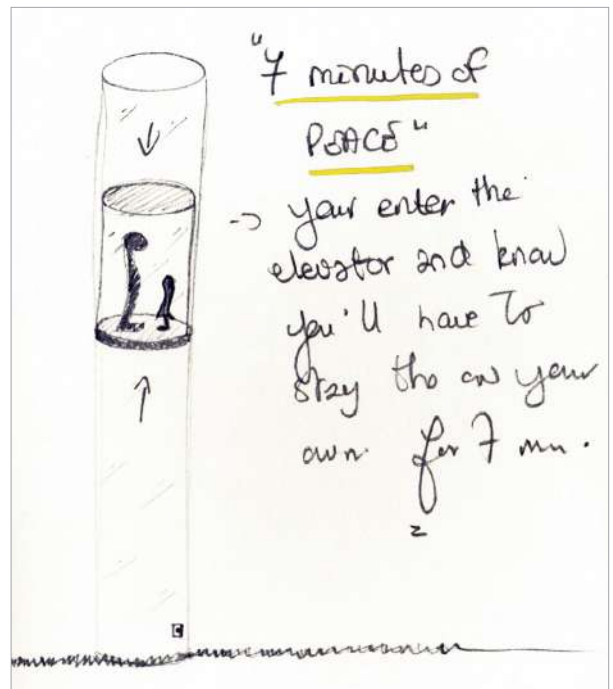 "7 minutes of
PEACE"
-> your enter the
elevator and know
you'll have to
stay tho on your
own. for 7 mn.